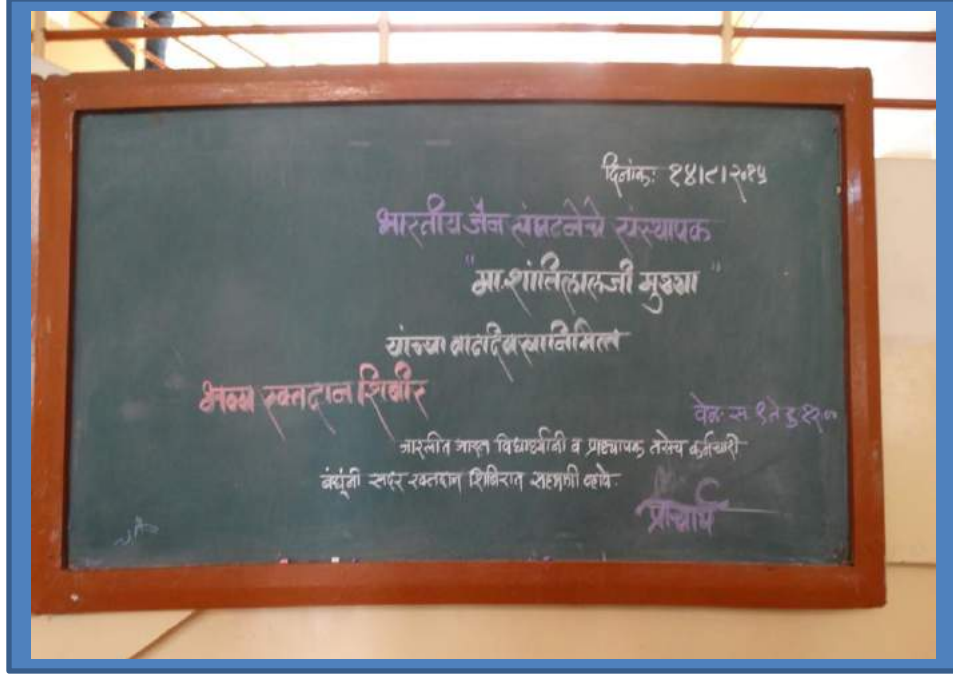 दिनांक: १४।८।२०१५
भारतीय जैन संघटनेचे संस्थापक
"मा. शांतिलालजी मुथ्था"
यांच्या वाढदिवसानिमित्त
भव्य रक्तदान शिबीर
वेळ: स ९ ते दु १२.००
जास्तीत जास्त विद्यार्थ्यांनी व प्राध्यापक तसेच कर्मचारी
बंधूंनी सदर रक्तदान शिबिरात सहभागी व्हावे.
प्राचार्य